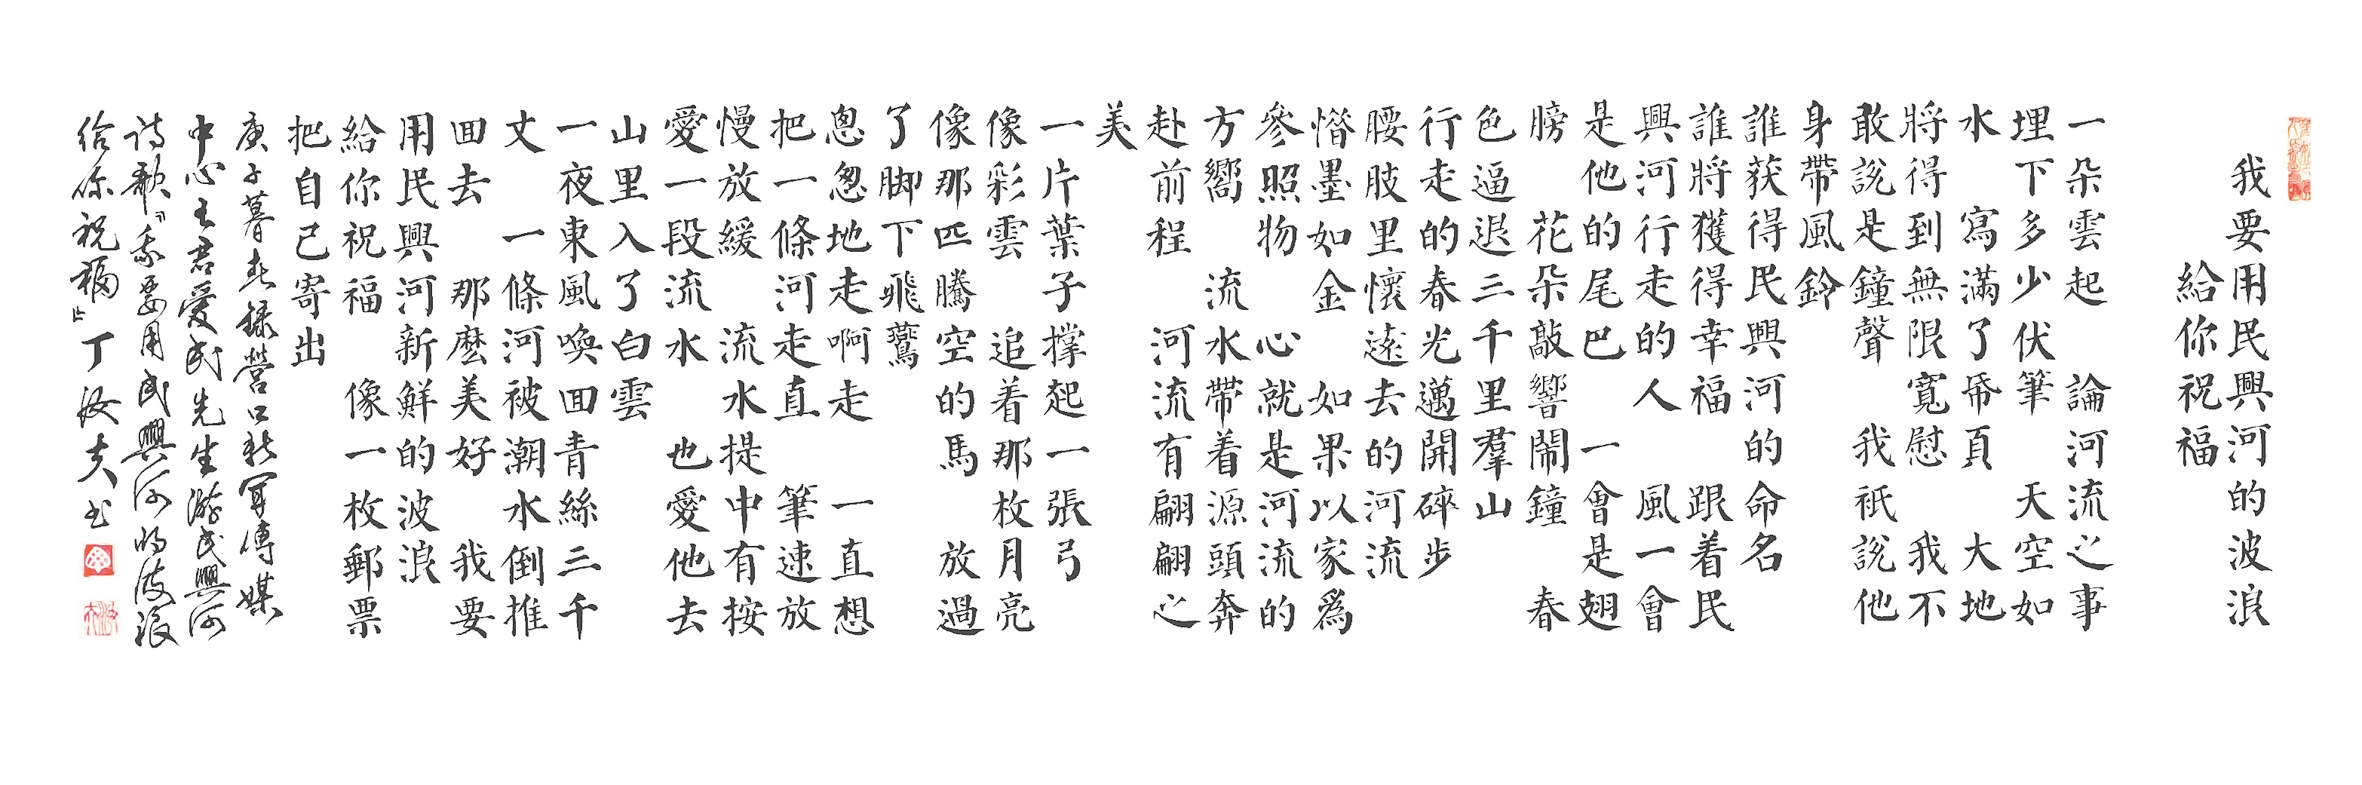 我要用民興河的波浪
給你祝福
一朵雲起 論河流之事
埋下多少伏筆 天空如
水 寫滿了帋頁 大地
將得到無限寬慰 我不
敢説是鐘聲 我祇説他
身帶風鈴
誰获得民興河的命名
誰將獲得幸福 跟着民
興河行走的人 風一會
是他的尾巴 一會是翅
膀 花朵敲響鬧鐘 春
色逼退三千里羣山
行走的春光邁開碎步
腰肢里懷遠去的河流
惜墨如金 如果以家爲
參照物 心就是河流的
方嚮 流水帶着源頭奔
赴前程 河流有翩翩之
美
一片葉子撐起一張弓
像彩雲 追着那枚月亮
像那匹騰空的馬 放過
了脚下飛鷰
匆匆地走啊走 一直想
把一條河走直 筆速放
慢放緩 流水提中有按
愛一段流水 也愛他去
山里入了白雲
一夜東風喚回青絲三千
丈 一條河被潮水倒推
回去 那麽美好 我要
用民興河新鮮的波浪
給你祝福 像一枚郵票
把自己寄出
庚子暮春錄營口新聞傳媒
中心王君愛民先生游民興河
詩歌『我要用民興河的波浪
給你祝福』丁汝夫书